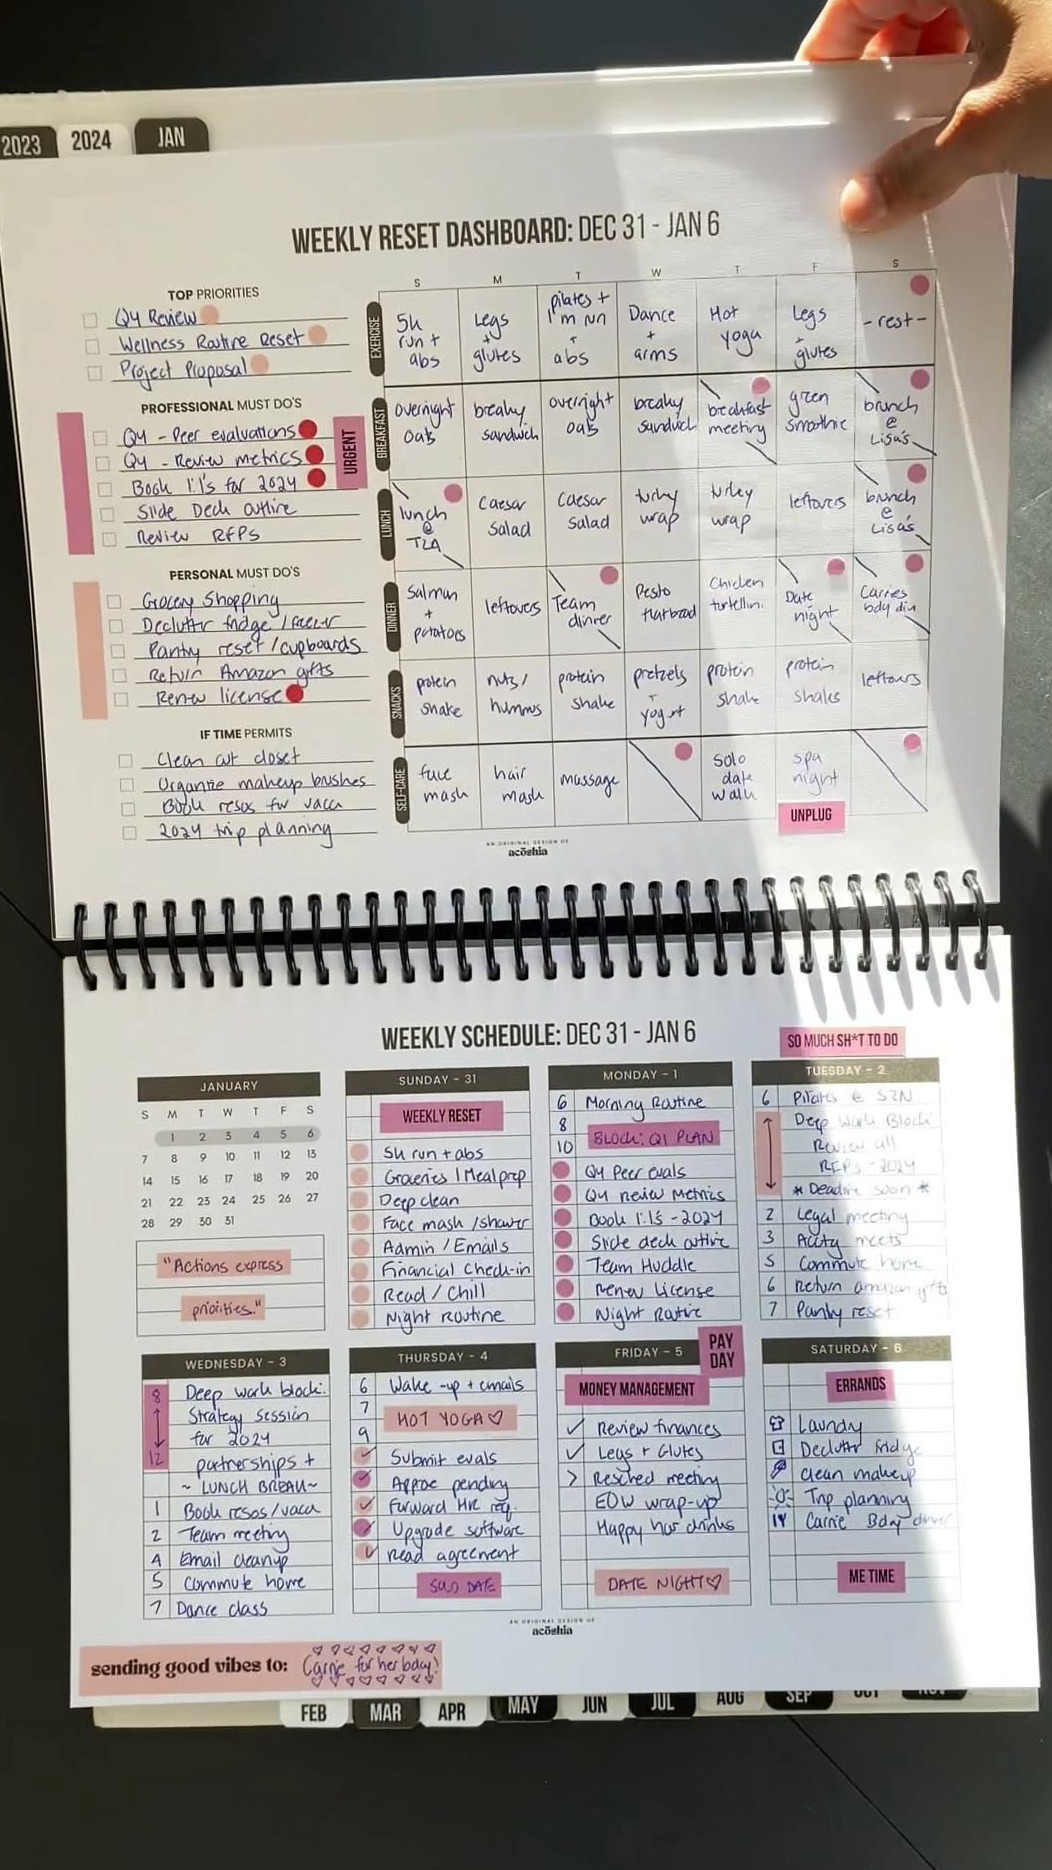 2023
2024
JAN
WEEKLY RESET DASHBOARD: DEC 31 - JAN 6
TOP PRIORITIES
Q4 Review
Wellness Routine Reset
Project Proposal
PROFESSIONAL MUST DO'S
Q4 - Peer evaluations
Q4 - Review metrics
Book 1:1's for 2024
Slide Deck outline
Review RFPS
URGENT
PERSONAL MUST DO'S
Grocery Shopping
Declutter fridge / freezer
Pantry reset / cupboards
Return Amazon gifts
Renew license
IF TIME PERMITS
Clean out closet
Organize makeup brushes
Book resos for vaca
2024 trip planning
S M T W T F S
EXERCISE
5k
run +
abs
Legs
+
glutes
pilates +
1 m run
+
abs
Dance
+
arms
Hot
yoga
Legs
+
glutes
- rest -
BREAKFAST
overnight
oats
breaky
sandwich
overnight
oats
breaky
sandwich
breakfast
meeting
green
smoothie
brunch
@
Lisa's
LUNCH
lunch
@
Caesar
salad
Caesar
salad
turkey
wrap
turkey
wrap
leftovers
brunch
@
Lisa's
DINNER
Salmon
+
potatoes
leftovers
Team
dinner
Pesto
flatbread
Chicken
tortellini
Date
night
Carries
bday din
SNACKS
protein
shake
nuts /
hummus
protein
shake
pretzels
+
yogurt
protein
shake
protein
shake
leftovers
SELF-CARE
face
mask
hair
mask
massage
solo
date
walk
spa
night
UNPLUG
AN ORIGINAL DESIGN OF
acōshia
WEEKLY SCHEDULE: DEC 31 - JAN 6
SO MUCH SH*T TO DO
JANUARY
S M T W T F S
1 2 3 4 5 6
7 8 9 10 11 12 13
14 15 16 17 18 19 20
21 22 23 24 25 26 27
28 29 30 31
"Actions express
priorities."
SUNDAY - 31
WEEKLY RESET
5k run + abs
Groceries | Meal prep
Deep clean
Face mask / shower
Admin / Emails
Financial Check-in
Read / Chill
Night Routine
MONDAY - 1
6 Morning Routine
8
10 BLOCK: Q1 PLAN
Q4 Peer evals
Q4 Review Metrics
Book 1:1's - 2024
Slide deck outline
Team Huddle
Renew License
Night Routine
TUESDAY - 2
6 Pilates @ SZN
Deep Work Block:
Review all
RFPs - 2024
* Deadline soon *
2 Legal meeting
3 meets
5 Commute home
6 Return amazon gifts
7 Pantry reset
WEDNESDAY - 3
8 Deep work block:
Strategy session
for 2024
12 partnerships +
~ LUNCH BREAK ~
1 Book resos / vaca
2 Team meeting
4 Email cleanup
5 Commute home
7 Dance class
THURSDAY - 4
6 Wake-up + emails
7
HOT YOGA ♡
9
Submit evals
Approve pending
Forward HR req.
Upgrade software
Read agreement
SOLO DATE
FRIDAY - 5
PAY
DAY
MONEY MANAGEMENT
✓ Review finances
✓ Legs + Glutes
> Resched meeting
EOW wrap-up
Happy hour drinks
DATE NIGHT ♡
SATURDAY - 6
ERRANDS
Laundry
Declutter fridge
Clean makeup
Trip planning
Carrie Bday dinner
ME TIME
AN ORIGINAL DESIGN OF
acōshia
sending good vibes to: Carrie for her bday!
FEB
MAR
APR
MAY
JUN
JUL
AUG
SEP
OCT
NOV